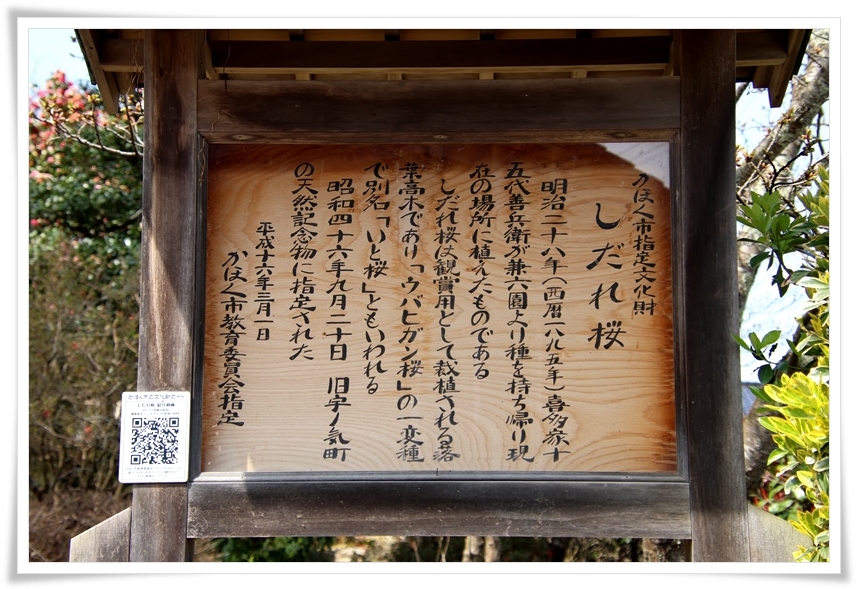 かほく市指定文化財
しだれ桜
明治二十八年（西暦一八九五年）喜多家十
五代善兵衛が兼六園より種を持ち帰り現
在の場所に植えたものである
しだれ桜は観賞用として栽植される落
葉高木であり「ウバヒガン桜」の一変種
で別名「いと桜」ともいわれる
昭和四十六年九月二十日 旧宇ノ気町
の天然記念物に指定された
平成十六年三月一日
かほく市教育委員会指定